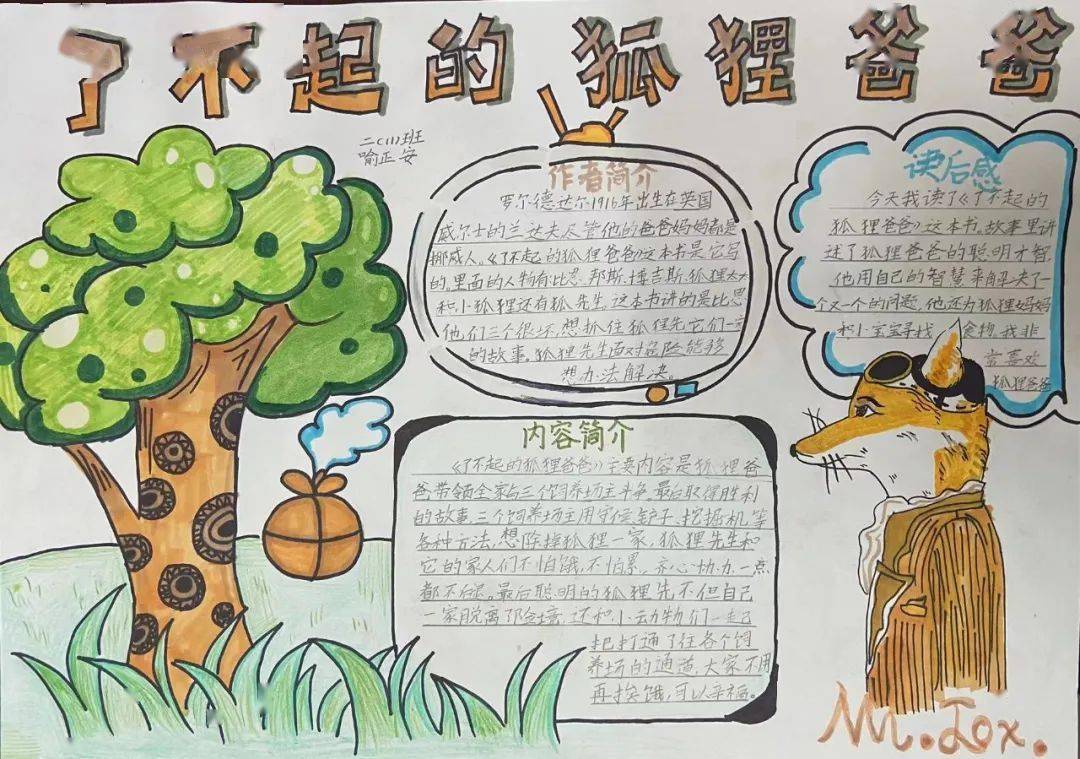 了不起的狐狸爸爸
二(1)班
喻正安
作者简介
罗尔德达尔1916年出生在英国
威尔士的兰达夫尽管他的爸爸妈妈都是
挪威人。《了不起的狐狸爸爸》这本书是它写
的,里面的人物有比恩.邦斯.博吉斯.狐狸太太
和小狐狸还有狐先生。这本书讲的是比恩
他们三个很坏,想抓住狐狸先它们一家
的故事,狐狸先生面对危险能够
想办法解决。
读后感
今天我读了《了不起的
狐狸爸爸》这本书。故事里讲
述了狐狸爸爸的聪明才智,
他用自己的智慧来解决了一
个又一个的问题,他还为狐狸妈妈
和小宝宝寻找食物,我非
常喜欢
狐狸爸爸
内容简介
《了不起的狐狸爸爸》主要内容是狐狸爸
爸带领全家与三个饲养场主斗争,最后取得胜利
的故事。三个饲养场主用守侯、铲子、挖掘机等
各种方法,想除掉狐狸一家,狐狸先生和
它的家人们不怕饿,不怕累,齐心协力,一点
都不。最后聪明的狐狸先不但自己
一家脱离了险境,还和小动物们一起
把打通了往各个饲
养场的通道,大家不用
再挨饿,可以幸福。
Mr. Fox.